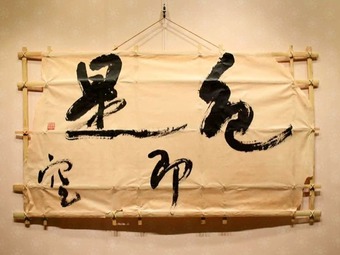 色
即
是
空